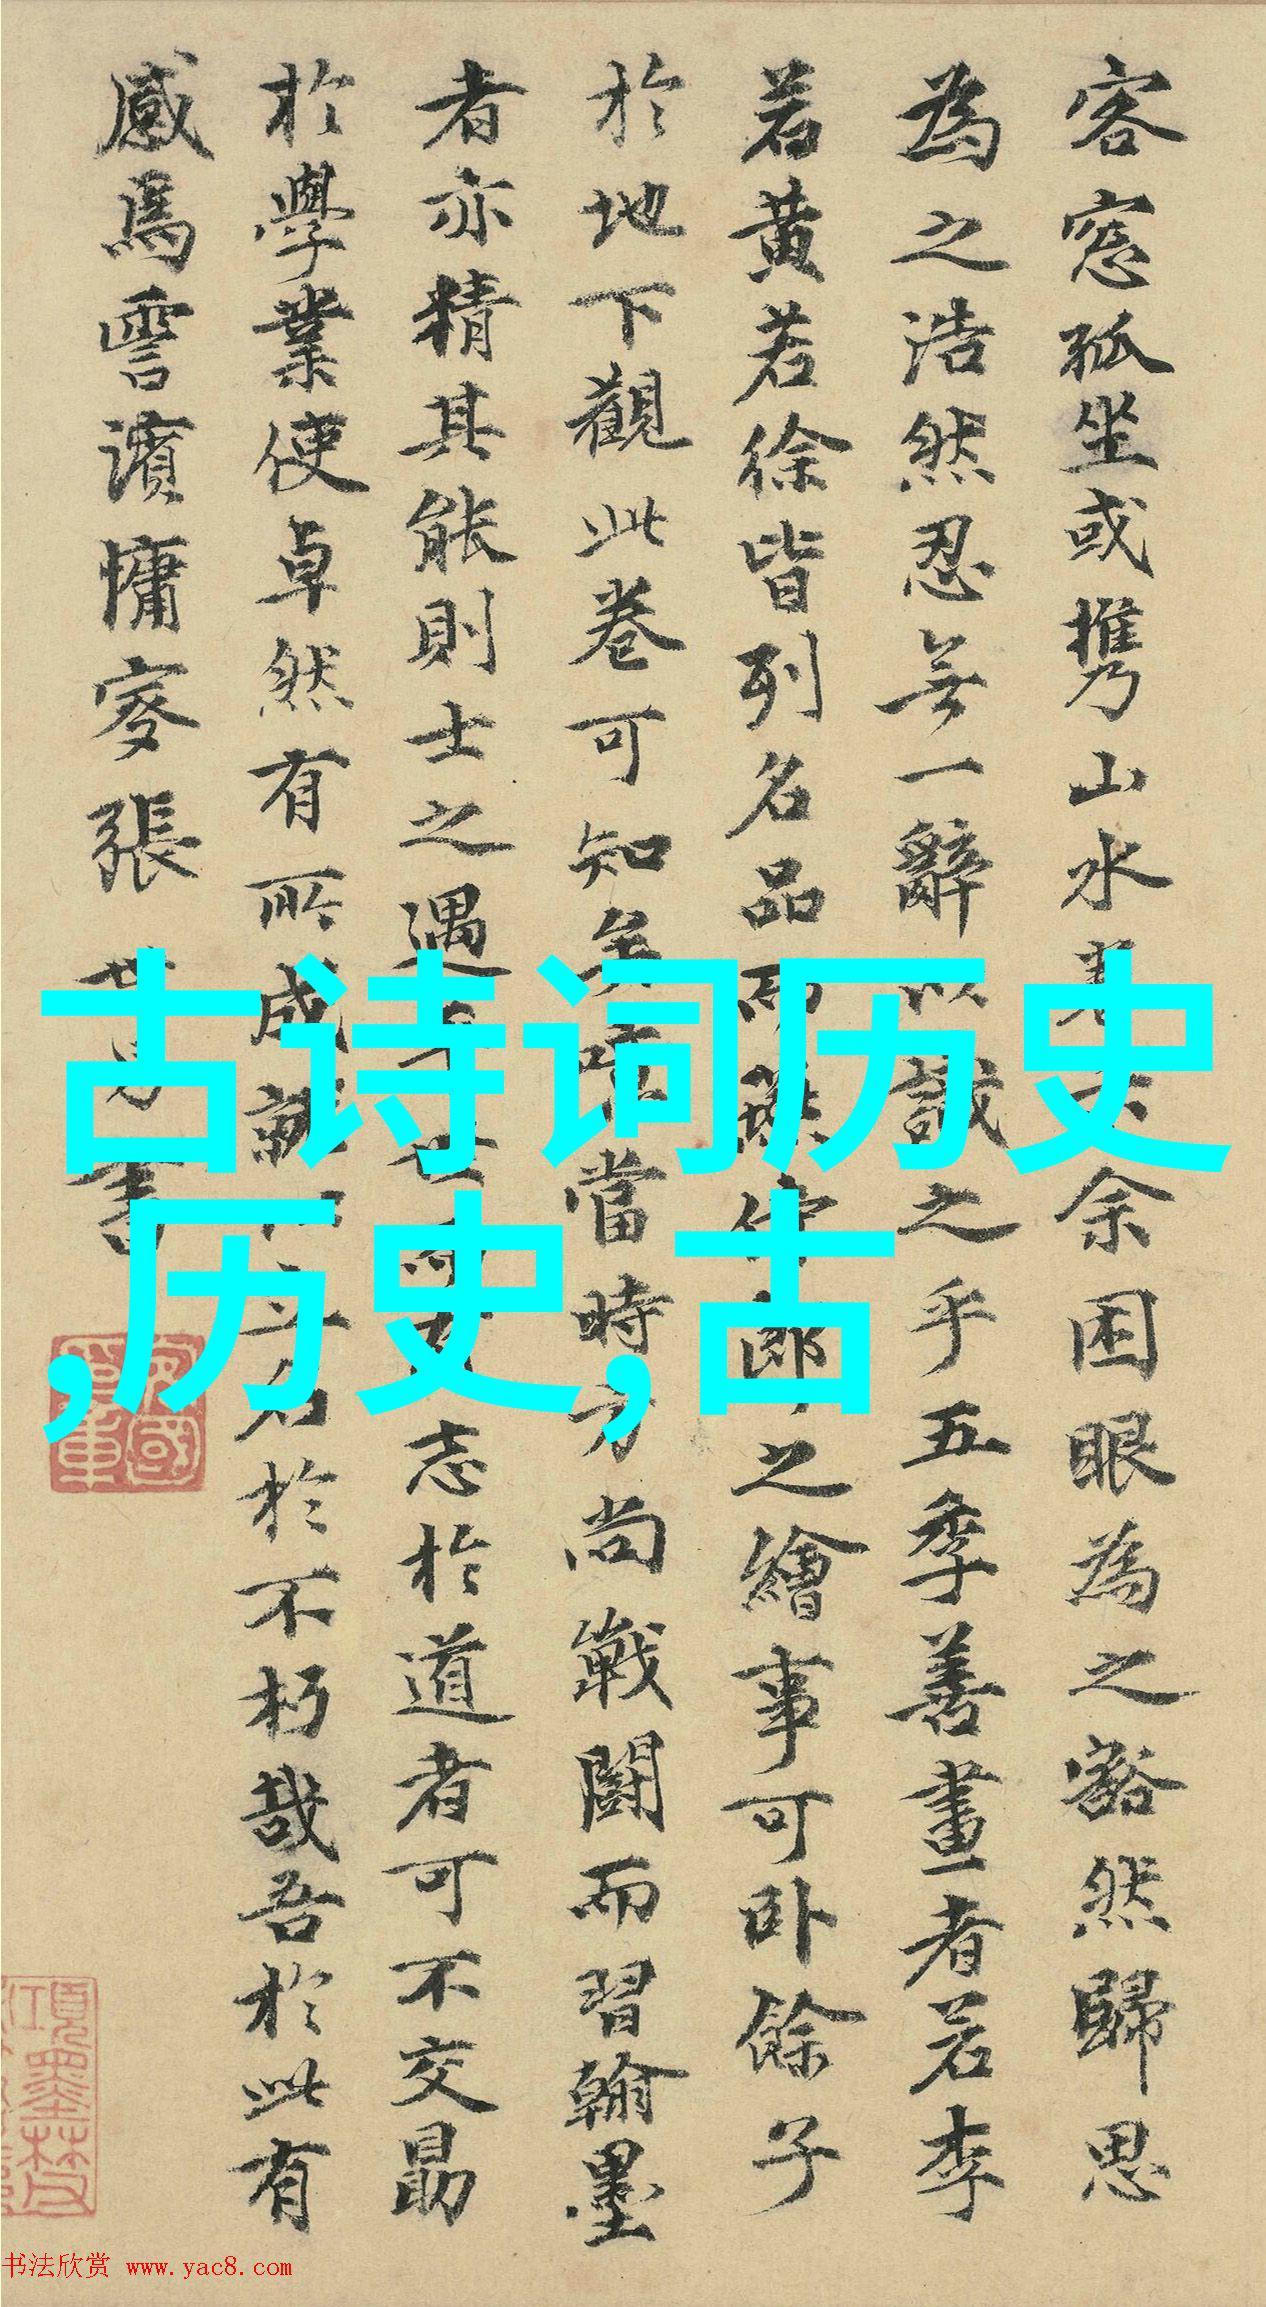 客窓孤坐或携山水卷余困眼為之豁然歸思
為之浩然忍無一辭以識之乎五季善畫者若李
若黄若徐皆列名品而侍郎之繪事可卧餘子
於地下觀此卷可知矣當時方尚戰鬪而習翰墨
者亦精其能則士之遇世志於道者可不交勗
於學業使卓然有所成就名於不朽哉吾於此有
感焉雲濱慵叜張世書
古诗词历史
,历史,古
书法欣赏 www.yac8.com